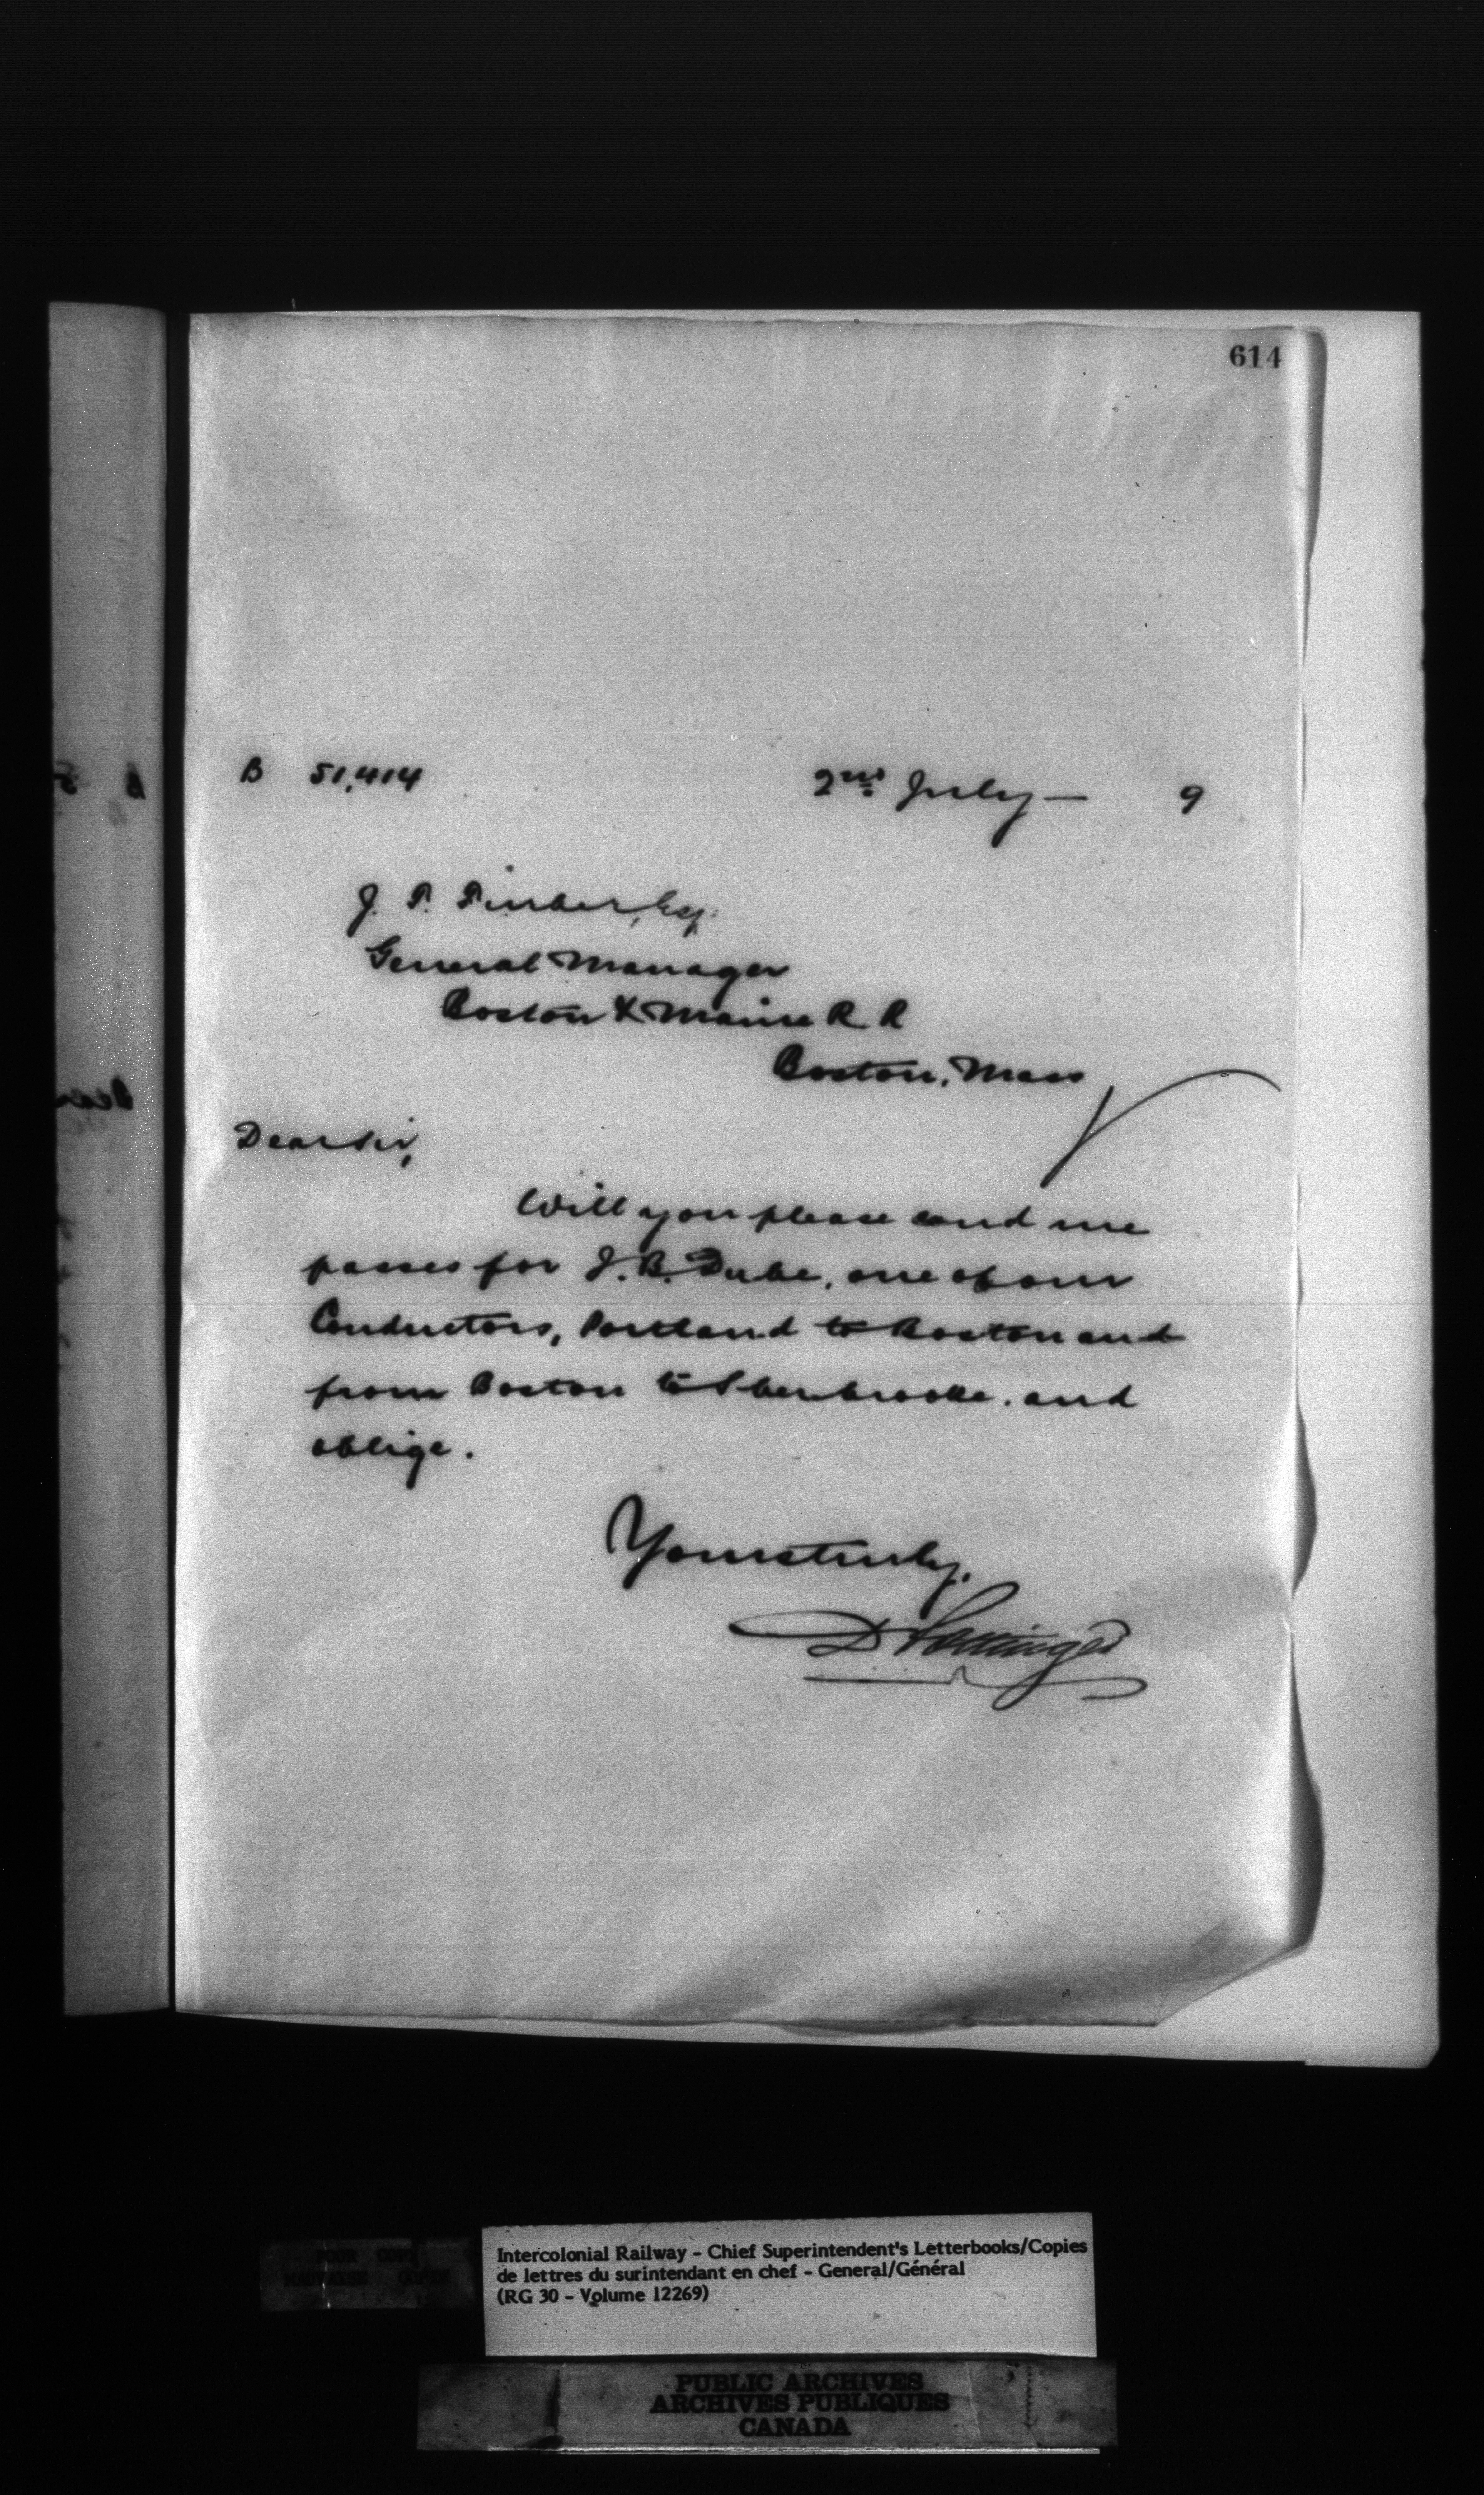 614
B 51,414 2nd July — 9
J. T. Furber, Esq.
General Manager
Boston & Maine R R
Boston, Mass
Dear Sir,
Will you please send me
passes for J. B. Dube, one of our
Conductors, Portland to Boston and
from Boston to Sherbrooke. and
oblige.
Yours truly,
D Pottinger
Intercolonial Railway - Chief Superintendent's Letterbooks/Copies
de lettres du surintendant en chef - General/Général
(RG 30 - Volume 12269)
PUBLIC ARCHIVES
ARCHIVES PUBLIQUES
CANADA